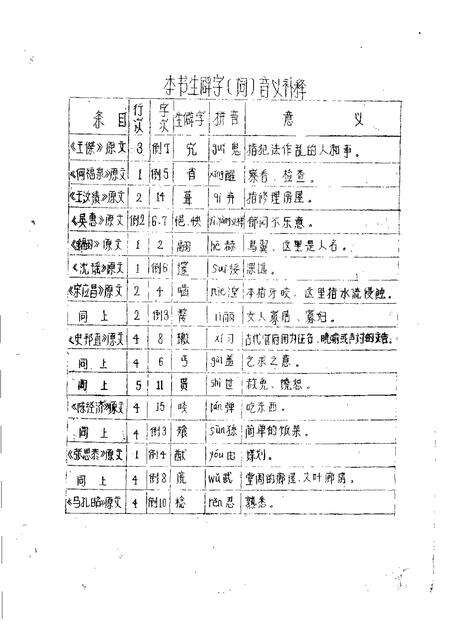 本书生僻字(词)音义补释
条目 行次 字次 生僻字 拼音 意义
《王傑》原文 3 倒7 宄 guǐ 鬼 指犯法作乱的人和事。
《何福泉》原文 1 倒5 省 xǐng醒 察看、检查。
《王汝绩》原文 2 14 葺 qì 弃 指修理房屋。
《吴惠》原文 倒2 6-7 悒怏 郁闷不乐意。
原文 1 2 翮 hé 赫 鸟翼,这里是人名。
《沈瑶》原文 1 倒6 邃 suì 深远。
《宋应昌》原文 2 4 啮 niè涅 本指牙咬,这里指水流侵蚀。
同上 2 倒3 嫠 lí 丽 女人寡居、寡妇。
《史邦直》原文 4 8 檄 xí 习 古代官府用为征召、晓喻或声讨的文书。
同上 4 6 丐 gài 盖 乞求之意。
同上 5 11 贳 shì 世 赦免、饶恕。
《陈经济》原文 4 15 啖 dàn 弹 吃东西。
同上 4 倒3 飧 sūn 孙 简单的饭菜。
《张思泰》原文 1 倒4 猷 yóu 由 谋划。
同上 4 倒8 庑 wǔ 武 堂周的廊屋,又叶廊房。
《马孔昭》原文 4 倒10 稔 rěn 忍 熟悉。